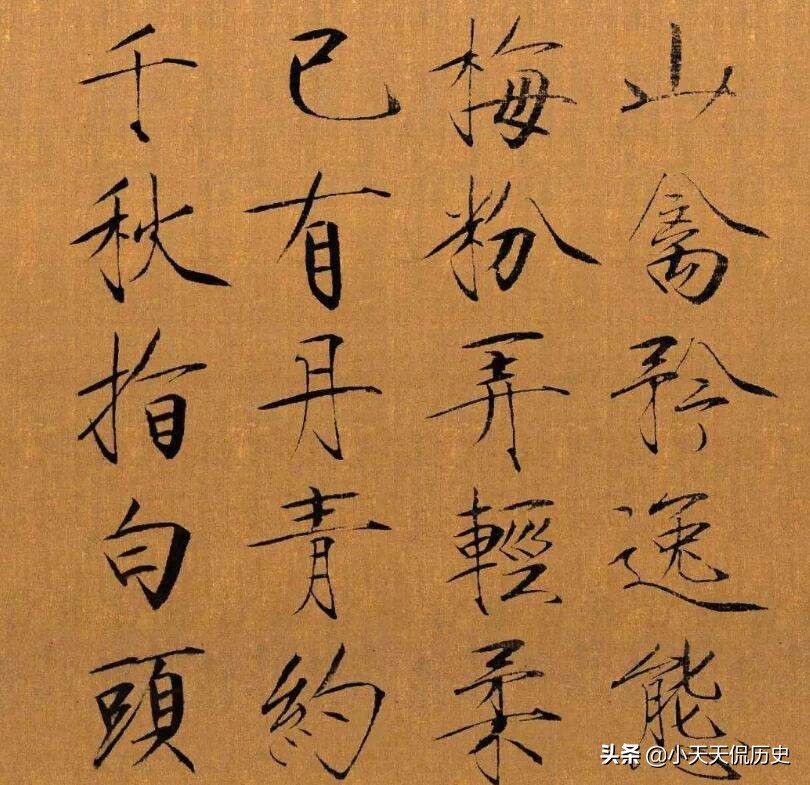 山禽矜逸能
梅粉弄輕柔
已有丹青約
千秋指白頭
头条 @小天天侃历史